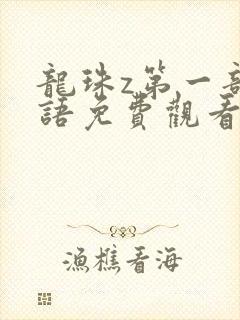 龍珠z第一
語免費觀看
漁樵看海